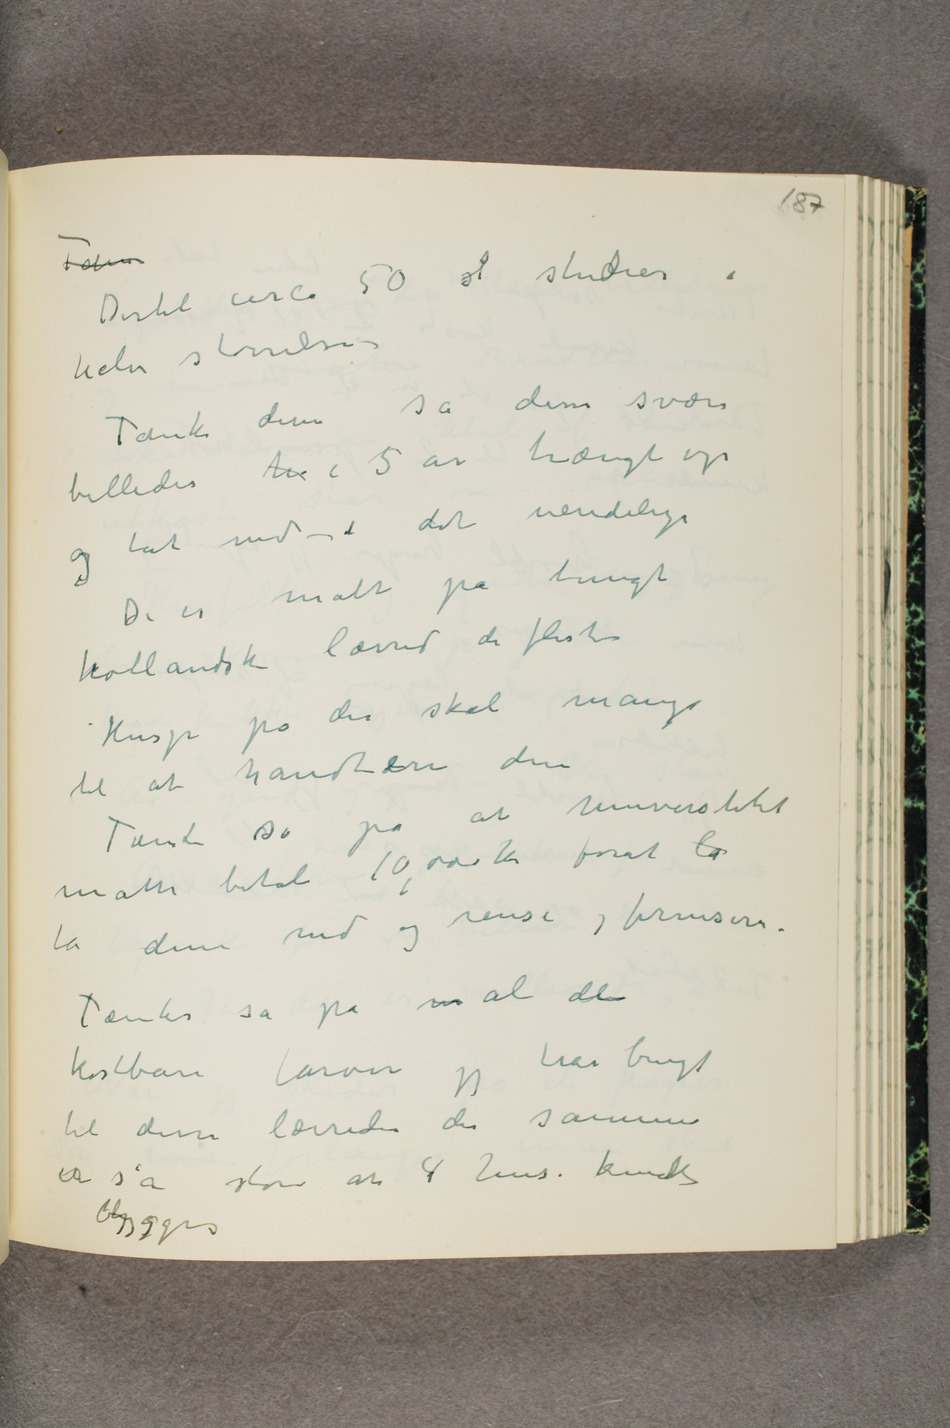 187
Tæn
Dertil circa 50 st studier i
halv størrelse –
Tænk dem så disse svære
billeder hæ i 5 år hængt op
og tat ned – i det uendelige
De er malt på tungt
hollandsk lærred de fleste
Husg på der skal mange
til at håndtere dem
Tænk så på at universitetet
måtte betale 10,000 kr forat la
ta dem ned og rense og fernisere.
Tænk så på al de
kostbare farver jeg har brugt
til disse lærreder der sammen
er så store at 4 hus. kunde
bygges